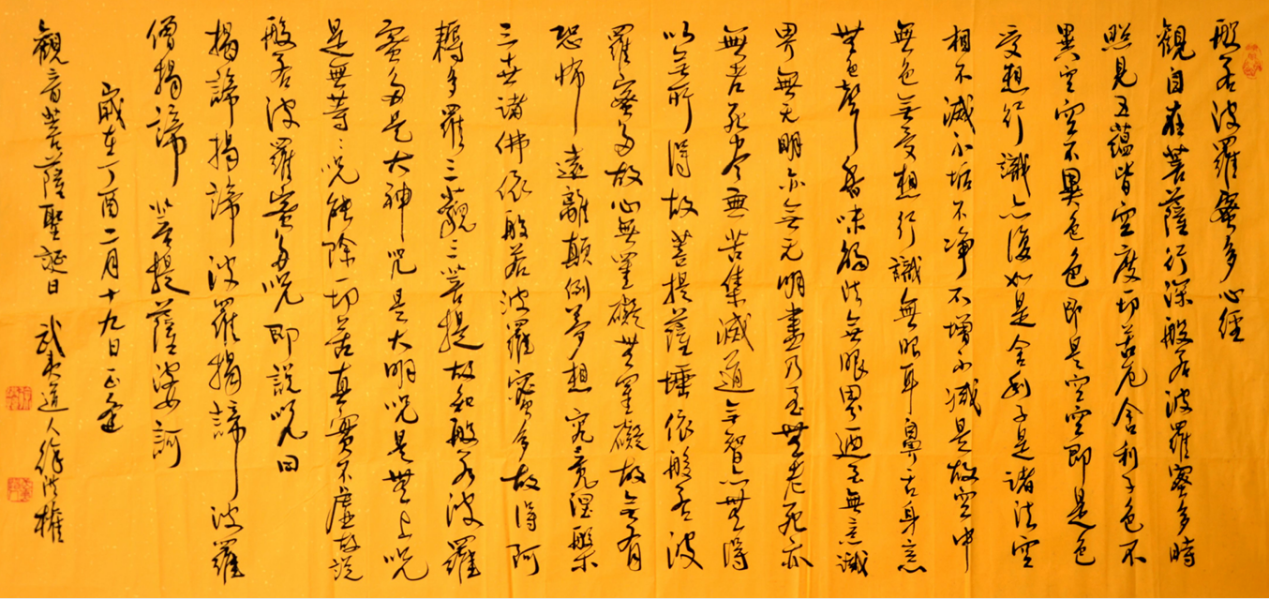 般若波羅蜜多心經
觀自在菩薩行深般若波羅蜜多時
照見五蘊皆空度一切苦厄舍利子色不
異空空不異色色即是空空即是色
受想行識亦復如是舍利子是諸法空
相不滅不垢不净不增不减是故空中
無色無受想行識無眼耳鼻舌身意
無色聲香味觸法無眼界迺至無意識
界無无明亦無无明盡乃至無老死亦
無老死盡無苦集滅道無智亦無得
以無所得故菩提薩埵依般若波
羅蜜多故心無罣礙無罣礙故無有
恐怖遠離顛倒夢想究竟涅槃
三世諸佛依般若波羅蜜多故得阿
耨多羅三藐三菩提故知般若波羅
蜜多是大神咒是大明咒是無上咒
是無等〻咒能除一切苦真實不虛故說
般若波羅蜜多咒即說咒曰
揭諦揭諦波羅揭諦波羅
僧揭諦菩提薩婆訶
歲在丁酉二月十九日正逢
觀音菩薩聖誕日武夷道人徐洪權